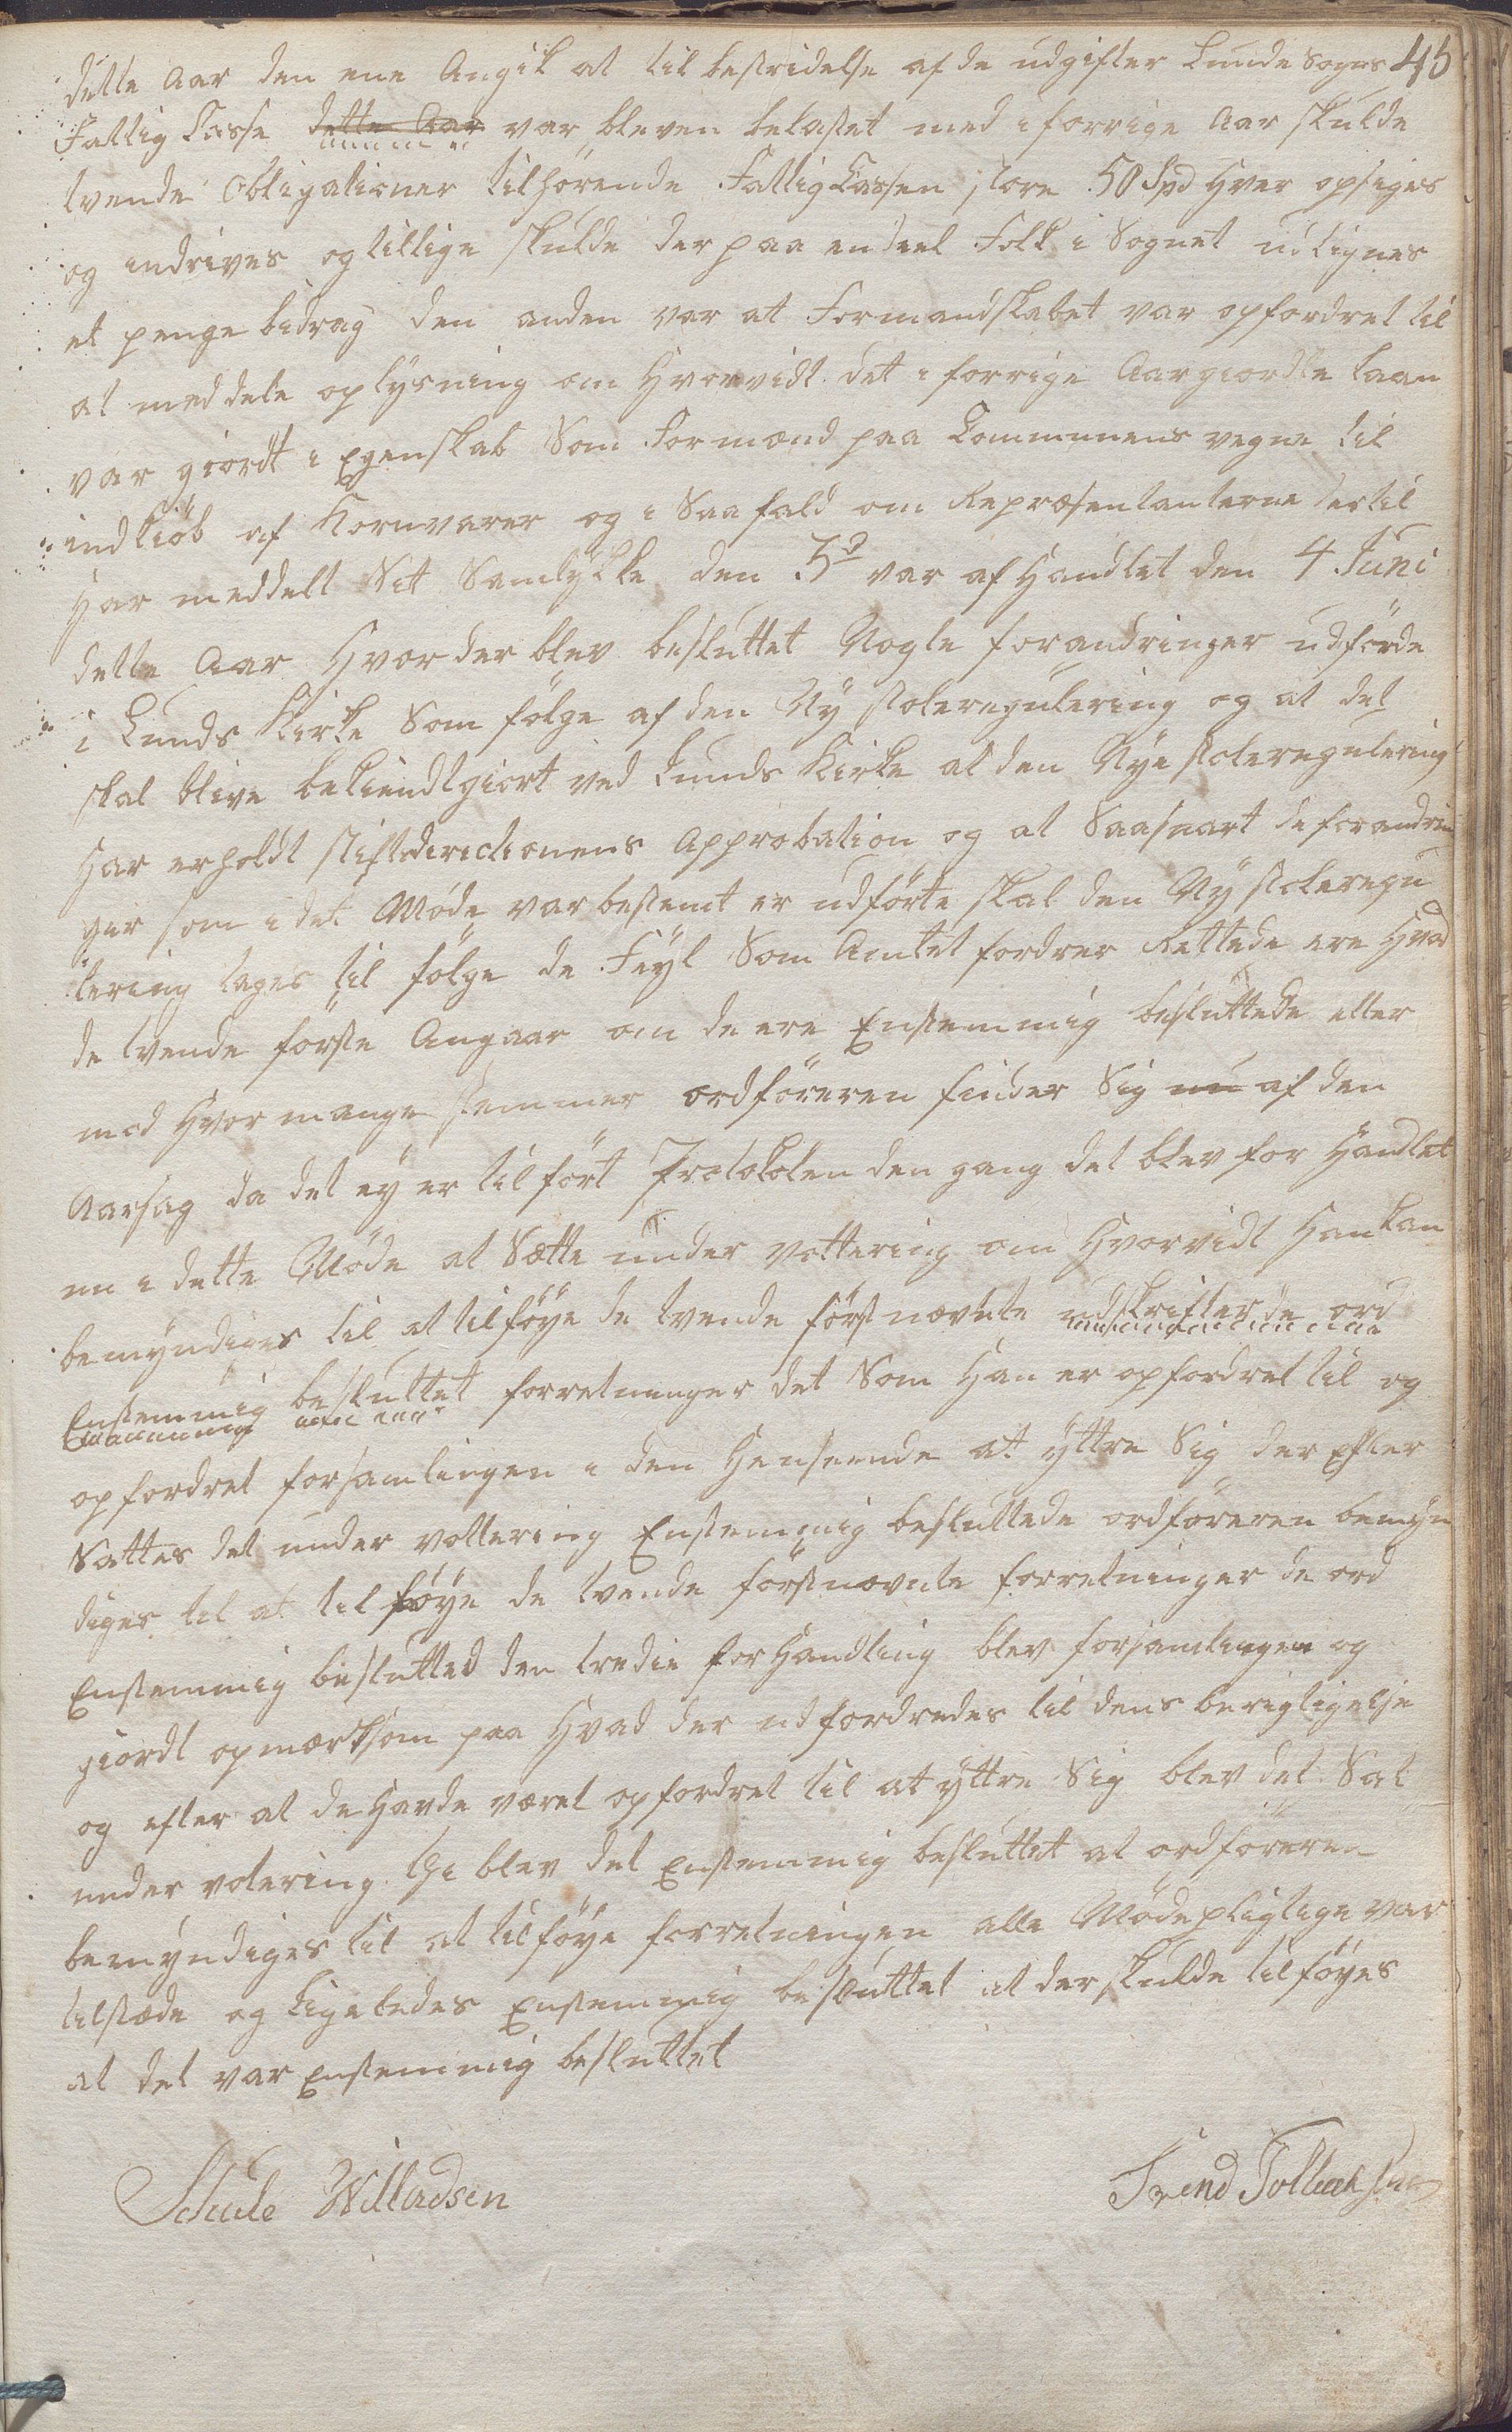 45
dette Aar den ene Angik at til bestridelse af de udgifter Lunde Sogns
Fattig Casse dette Aar var bleven belastet med i forrige Aar skulde
tvende Obligationer tilhörende FattigCassen store 50 Spd hver opsiges
og indrives og tillige skulde der paa endeel Folk i Sognet udlignes
et penge bidrag den anden var at Formandskabet var opfordret til
at meddele oplysning om Hvorvidt det i forrige Aar giordte laan
var giordt i Egenskab Som Formænd paa Communens vegne til
indkiöb af Kornvarer og i Saafald om Repræsentanterne dertil
Har meddelt Sit Samtÿkke den 3d var af Handlet den 4 Juni
dette Aar Hvor der blev besluttet Nogle forandringer udförde
i Lunds Kirke Som fölge af den Nÿ stoleregulering og at det
skal blive bekiendtgiort ved Lunds Kirke at den Nye stoleregulering
Har erholdt stiftsdirectionens Approbation og at Saasnart de forandrin
ger som i det Möde var bestemt er udförte skal den Nÿ stoleregu
lering tages til fölge de Feÿl Som Amtet fordrer Rettede ere Hvad
de tvende förste Angaar om de ere Enstemmig besluttede eller
med Hvor mange stemmer ordföreren finder Sig nu af den
Aarsag da det eÿ er tilfört Protokolen den gang det blev for Handlet
nu i dette Möde at Sætte under vottering om Hvorvidt Han kan
bemÿndiges til at tilföÿe de tvende först nævnte udskrifter de ord
Enstemmig besluttet forretninger det Som Han er opfordret til og
opfordret forsamlingen i den Henseende at ÿttre Sig der Efter
Sattes det under vottering Enstemmig besluttede ordföreren bemÿn
diges til at tilföÿe de tvende förstnævnte forretninger de ord
Enstemmig besluttet den tredie forHandling blev forsamlingen og
giordt opmærksom paa Hvad der udfordredes til dens berigtigelse
og efter at de Havde været opfordret til at ÿttre Sig blev det Sat
under votering thi blev det Enstemmig besluttet at ordföreren
bemÿndiges til at tilföÿe forretningen alle Mödepligtige var
tilstæde og ligeledes Enstemmig besluttet at der skulde tilföÿes
at det var Enstemmig besluttet
Willadsen Trend Tollachsen